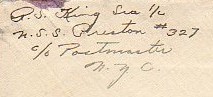 P.S. King Sea 1/c
U.S.S. Preston #327
c/o Postmaster
N.Y.C.